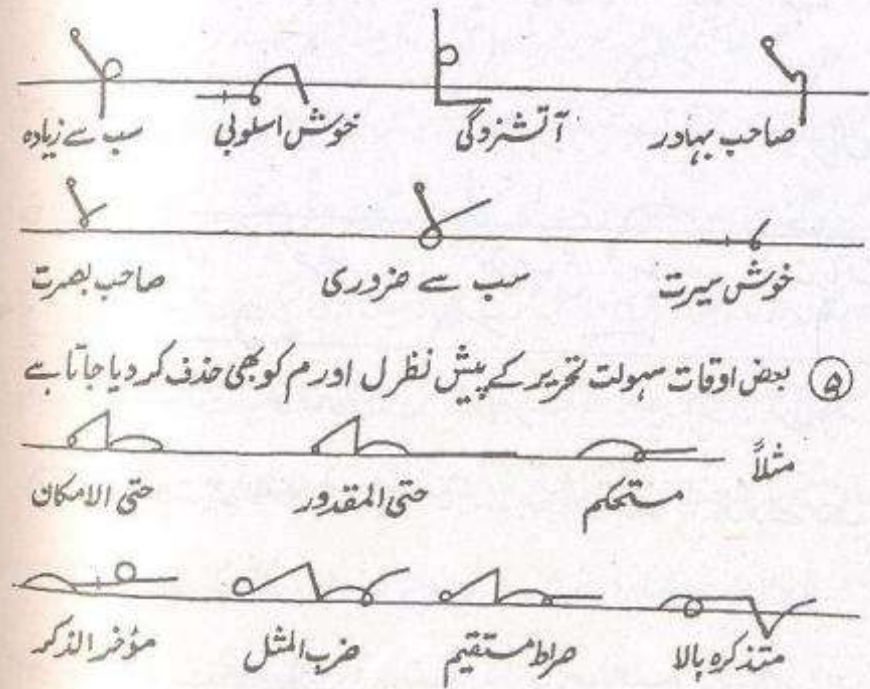 صاحب بہادر آتشزدگی خوش اسلوبی سب سے زیادہ
خوش سیرت سب سے ضروری صاحب بصرت
۵ بعض اوقات سہولت تحریر کے پیش نظر ل اور م کو بھی حذف کر دیا جاتا ہے
مثلاً
مستحکم حتی المقدور حتی الامکان
متذکرہ بالا صراط مستقیم ضرب المثل مؤخر الذکر